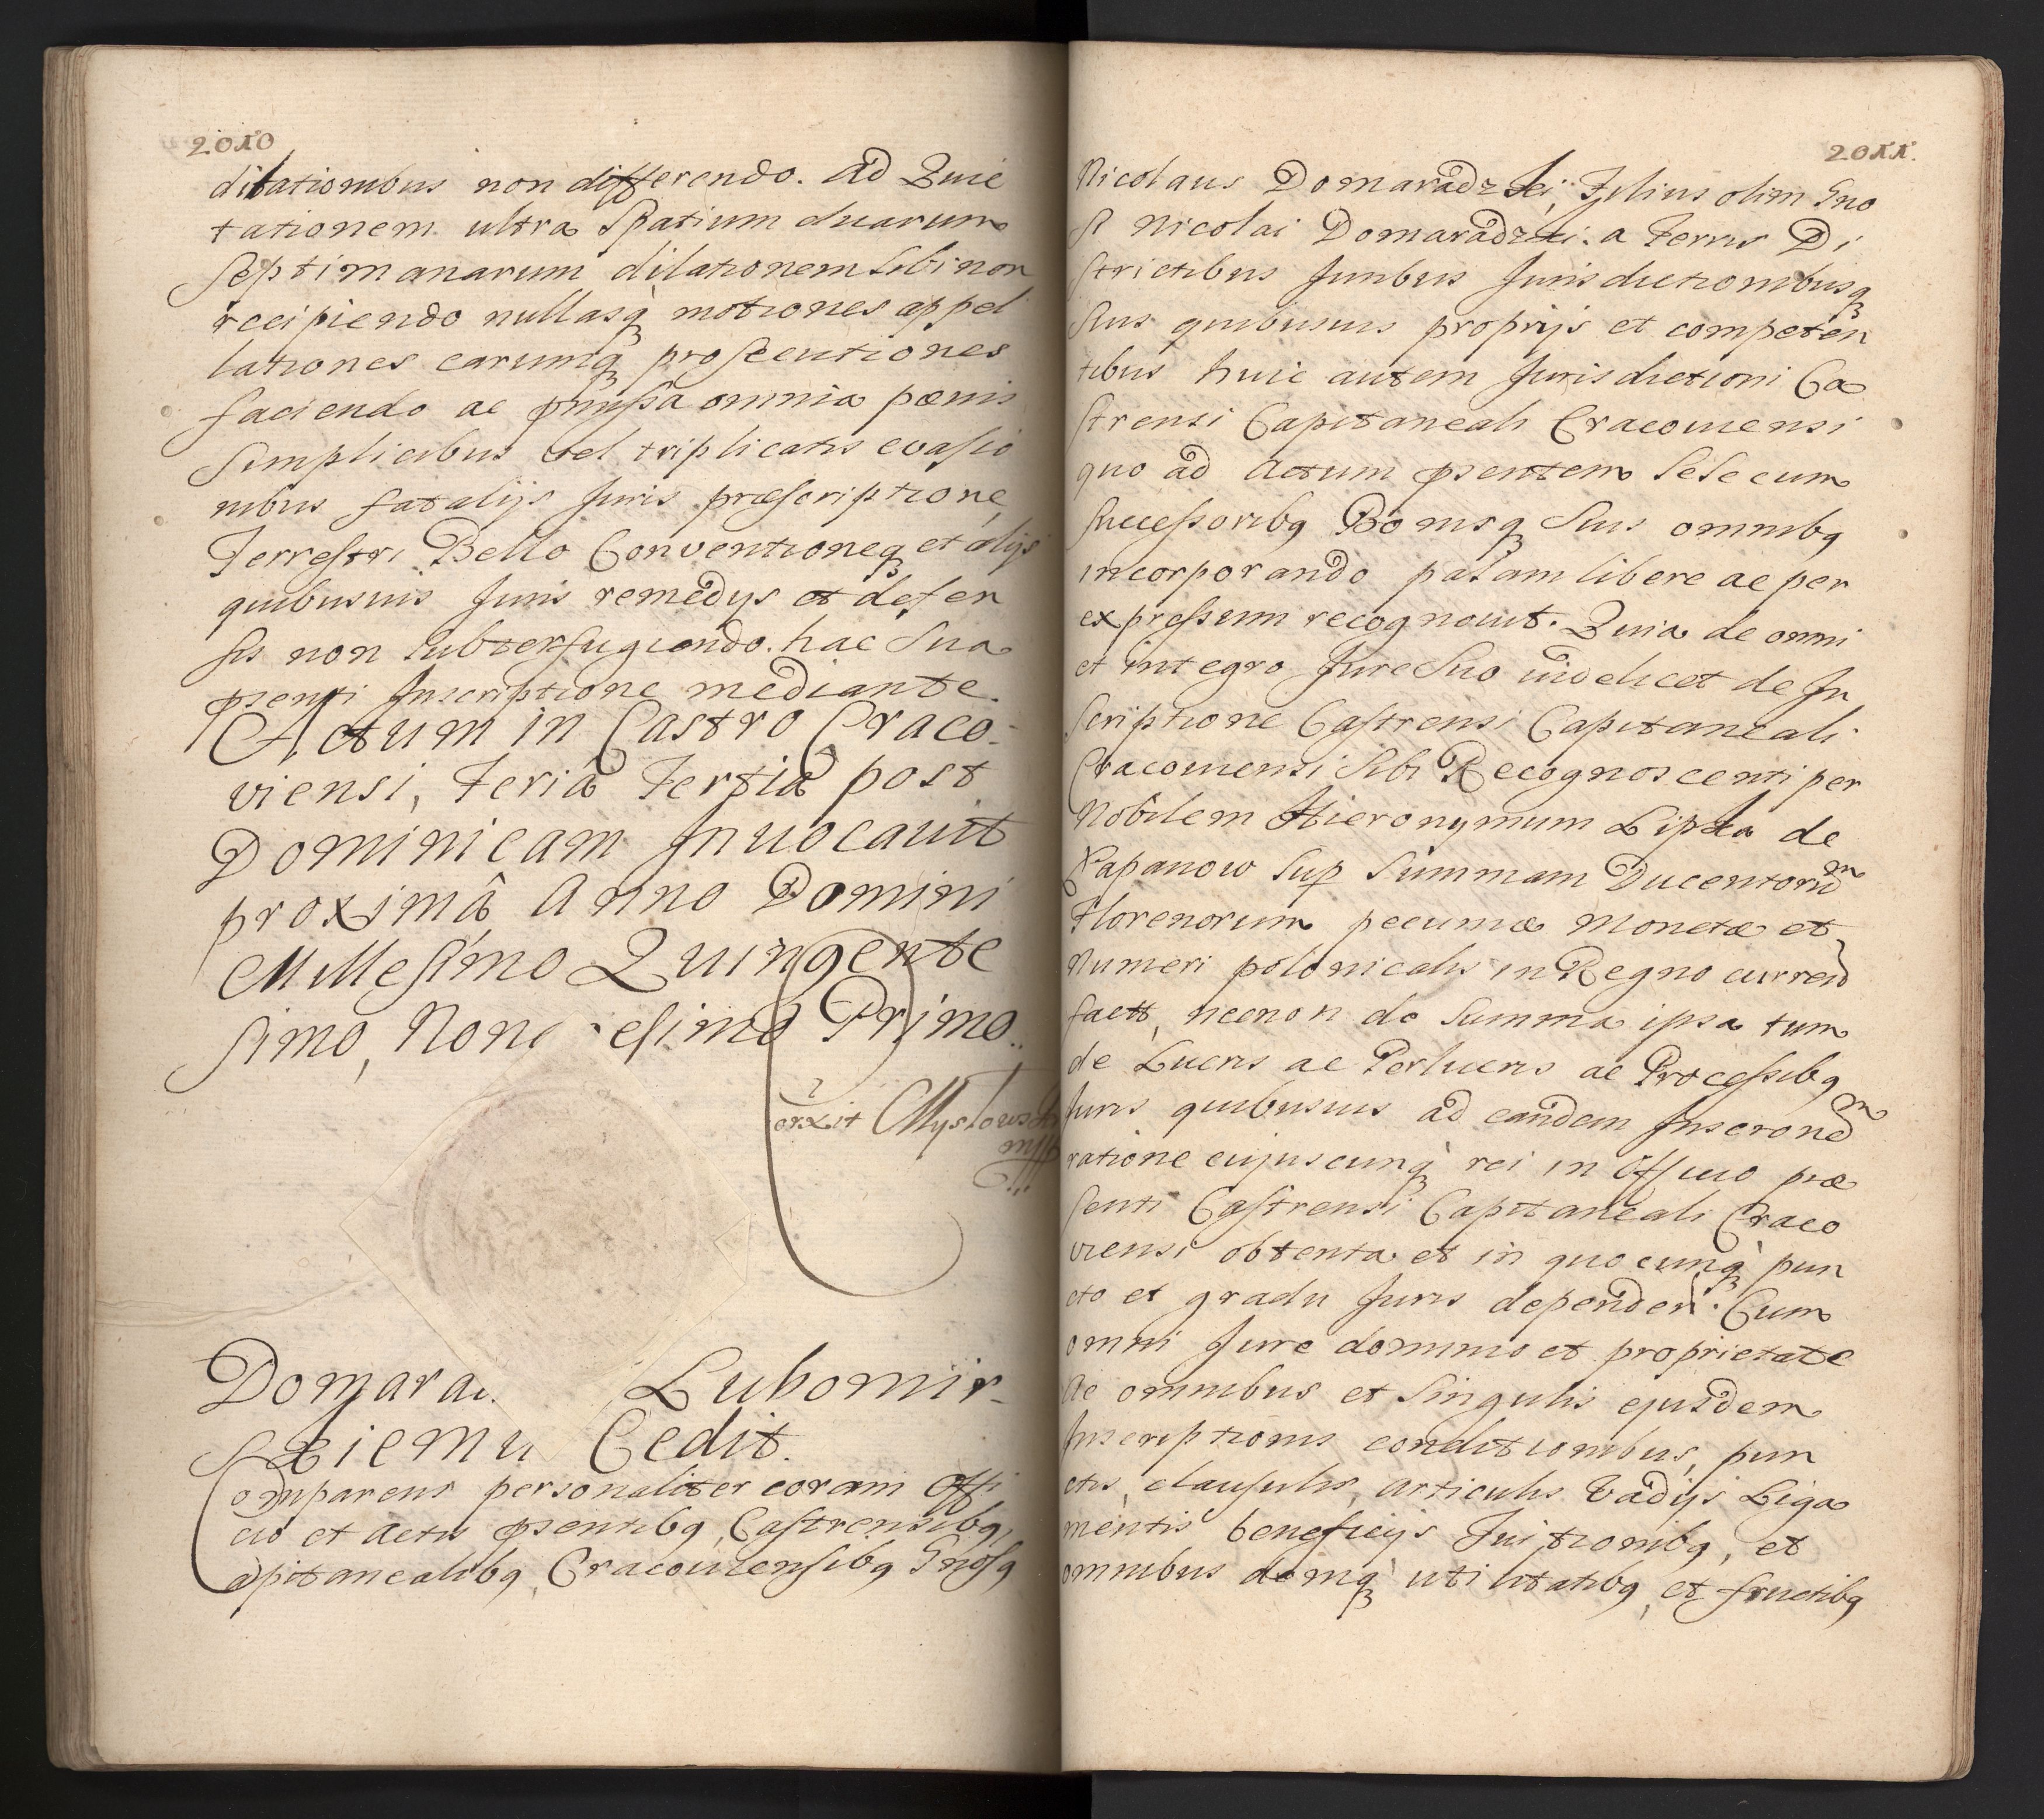 2010
dilationibus non differendo. Ad Quie
tationem ultra Spatium duarum
septimanarum dilationem sibi non
recipiendo nullasq motiones appel
lationes earumq prosecutiones
faciendo ac pmissa omnia pænis
simplicibus vel triplicatis evasio
nibus fatalijs Juris præscriptione,
Terrestri Bello Conventioneq et alijs
quibusuis Juris remedys et defen
sis non subterfugiendo. hac sua
psenti Inscriptione mediante.
Actum in Castro Craco-
viensi, Feria Tertia post
Dominicam Invocavit
proximâ Anno Domini
Millesimo Quingente
simo, Nonagesimo Primo.
Domarad Lubomir-
skiemu Cedit.
Comparens personaliter coram Offi
cio et Actis psentibq Castrensibq,
Capitanealibq, Cracouiensibq Gnosq
2011.
Nicolaus Domaradzkj, Filius olim Gno
si Nicolai Domaradzki. a Terris Di
strictibus Juribus Jurisdictionibusq
suis quibusuis proprijs et competen
tibus huic autem Jurisdictioni Ca
strensi Capitaneali Cracouiensi
quo ad Actum psentem sese cum
successoribq Bonisq suis omnibq
incorporando palam libere ac per
expressum recognouit. Quia de omni
et integro Jure suo uidelicet de In
scriptione Castrensi Capitaneali
Cracouiensi sibi Recognoscenti per
Nobilem Hieronymum Lipka de
Papanow sup summam Ducentoru m
Florenorum pecuniæ Monetæ et
Numeri polonicalis in Regno curren
fact, necnon de summa ipsa tum
de Lucris ac Perlucris ac Processibq
Juris quibusuis ad eandem Inscrone m
ratione cujuscunq rei in Officio præ
senti Castrensi Capitaneali Craco
viensi obtenta et in quocunq pun
cto et gradu Juris dependen. Cum
omni Jure dominio et proprietate
Ac omnibus et singulis ejusdem
Inscriptionis conditionibus, pun
ctis, clausulis, articulis Vadijs Liga
mentis beneficijs Tuitionibq, et
omnibus deniq utilitatibq, et fructibq